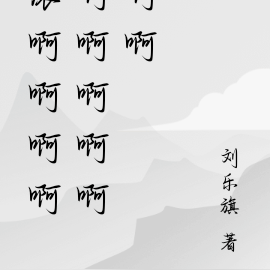 啊啊啊啊
啊啊啊啊
啊
刘乐旗 著